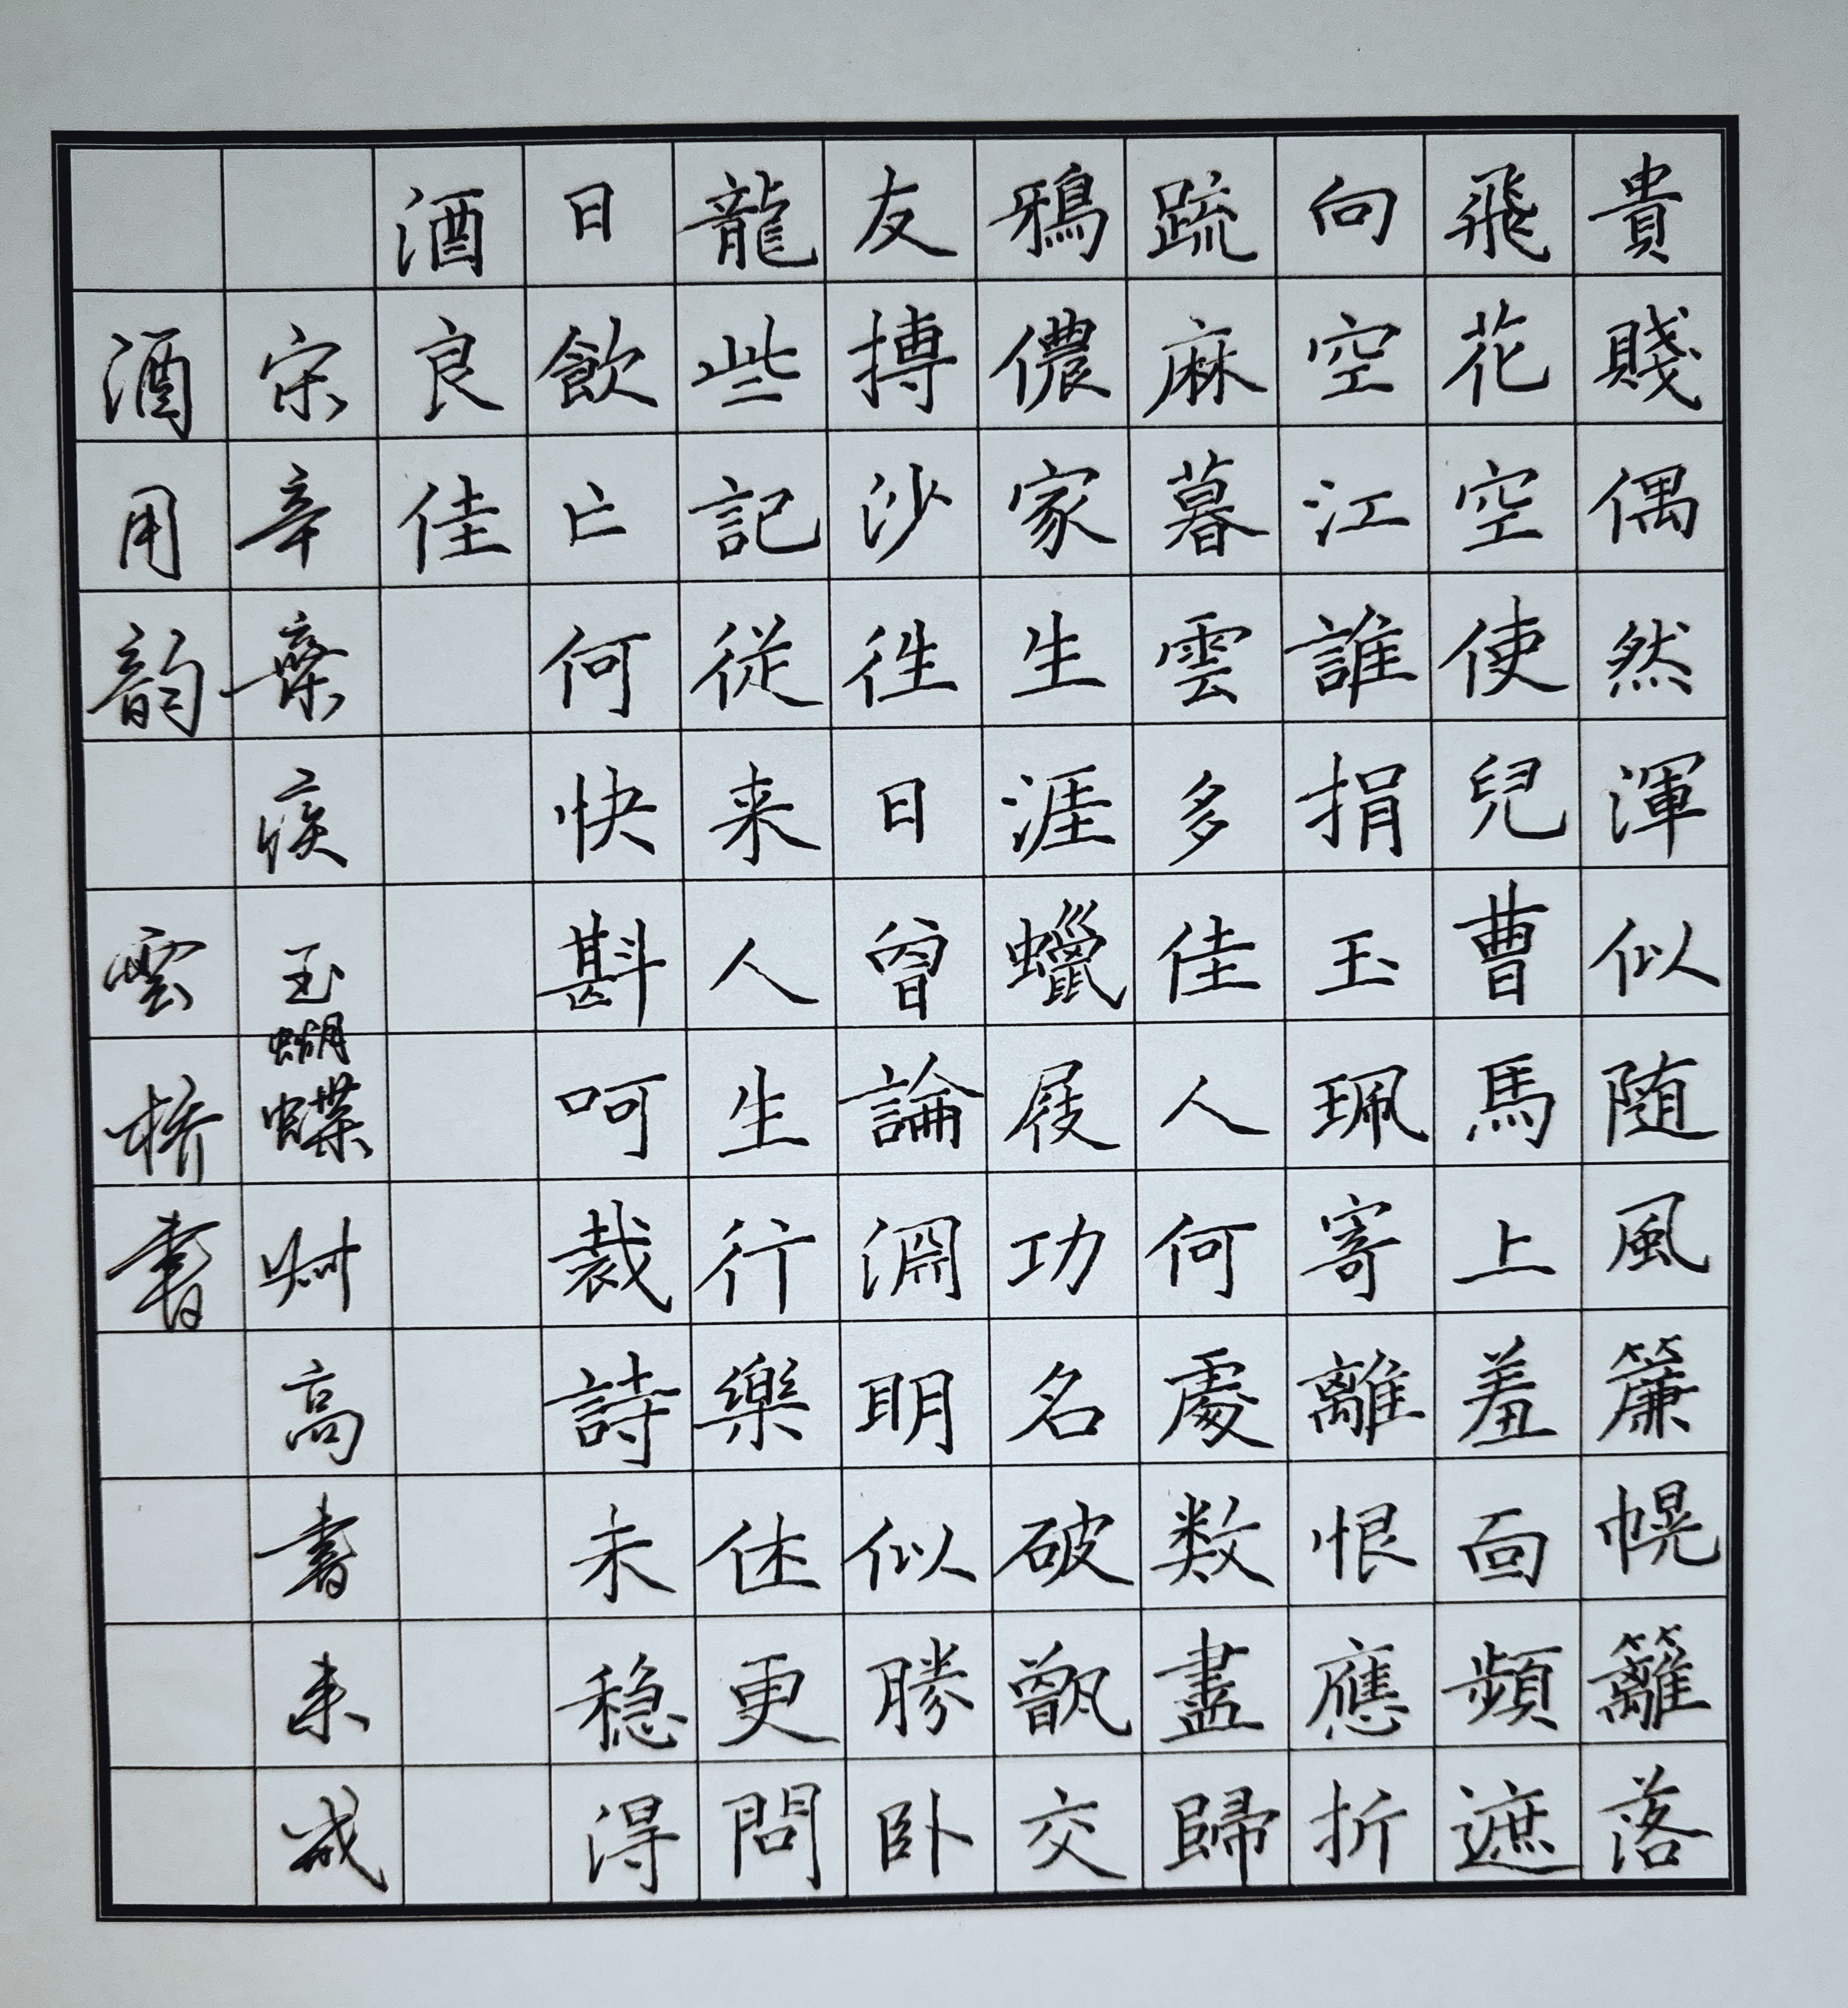 貴賤偶然渾似随風簾幌籬落
飛花空使兒曹馬上羞面頻遮
向空江誰捐玉珮寄離恨應折
疏麻暮雲多佳人何處数盡歸
鴉儂家生涯蠟屐功名破甑交
友摶沙往日曾論淵明似勝卧
龍些記從来人生行樂休更問
日飲亡何快斟呵裁詩未穏得
酒良佳
宋辛棄疾玉蝴蝶叔高書来戒
酒用韵雲橋書